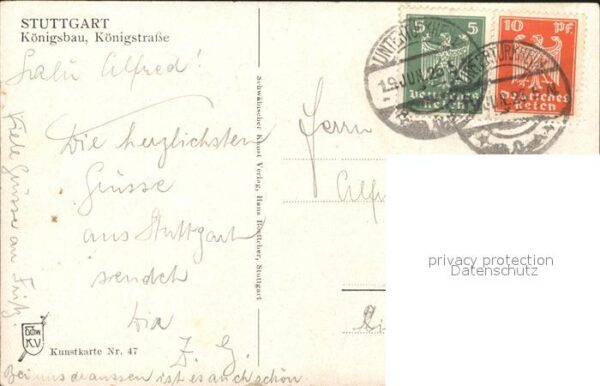 STUTTGART
Königsbau, Königstraße
Salü Alfred!
Die herzlichsten
Grüsse
aus Stuttgart
sendet
Dia
F. G.
Viele Grüsse an Fritz.
Bei uns draussen ist es auch schön
Kunstkarte Nr. 47
Schw.
K.V.
Schwäbischer Kunst Verlag, Hans Boettcher, Stuttgart
5 5
Deutsches
Reich
10 Pf.
Deutsches
Reich
UNTERTÜRKHEIM
19.JUN.26
Herrn
Alf
privacy protection
Datenschutz